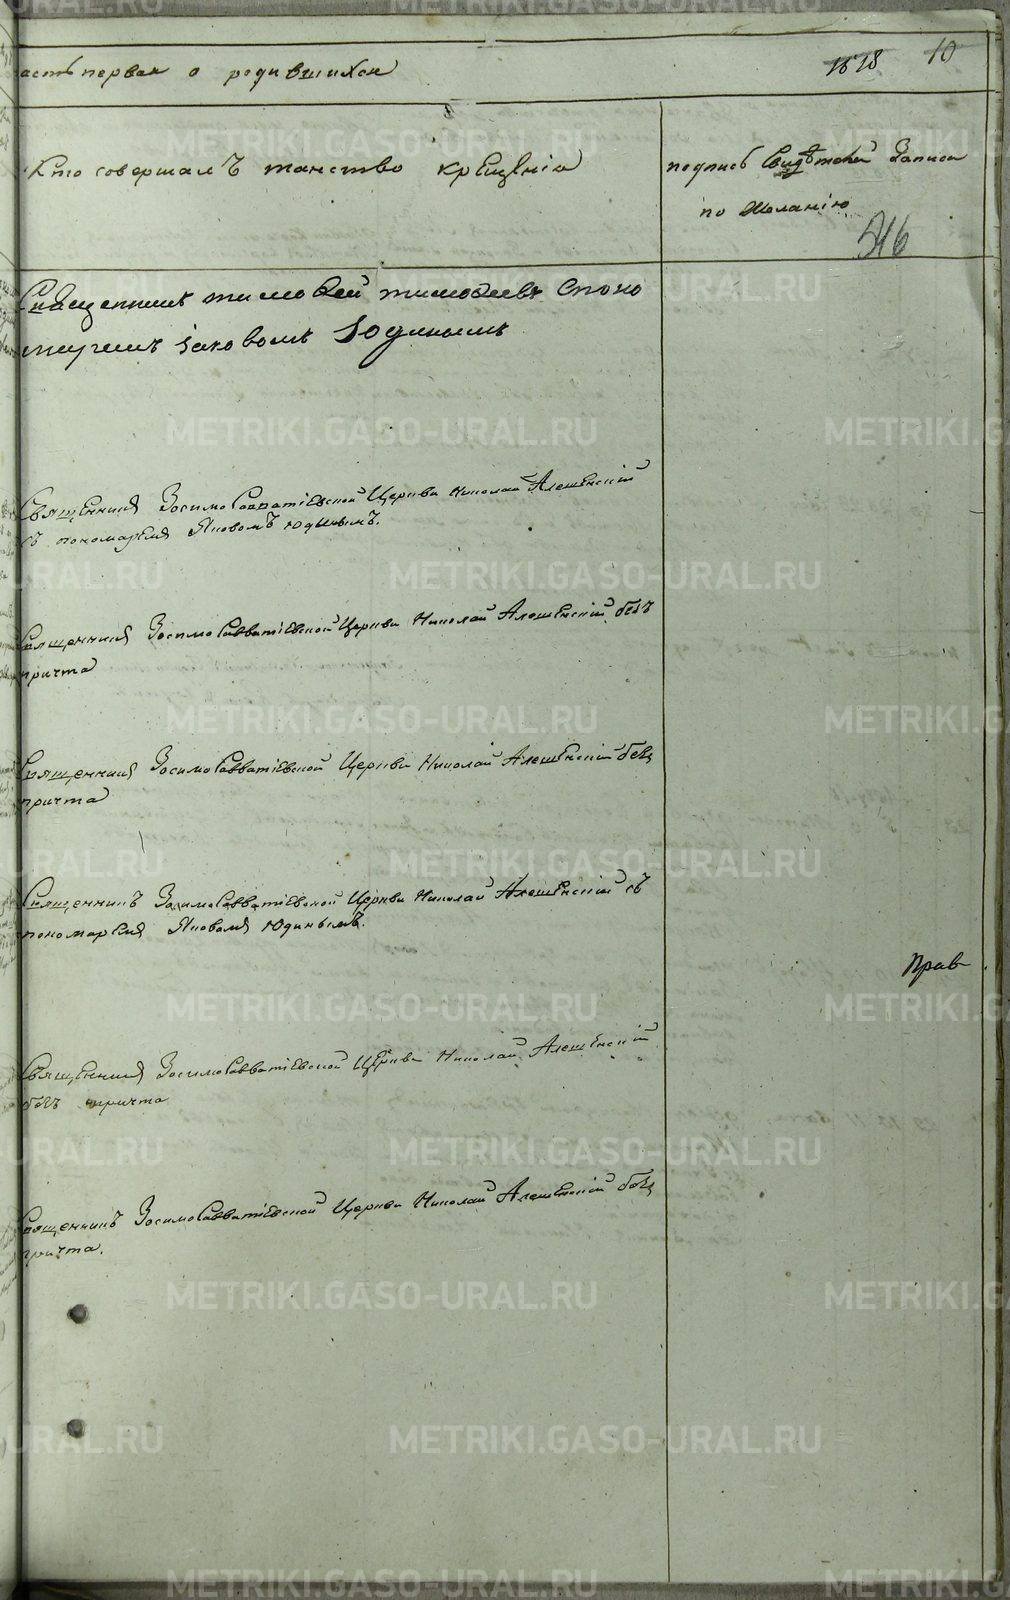 асть первая о родившихся 1818 10
Кто совершалъ таинство крещенія
подпись Свидѣтелей Записи
по Желанію
516
Священникъ тимофей тимофеевъ Споно
маремъ іаковомъ Юдинымъ
Священник Зосимо Савватіевской Церкви Николай Алешенскій
съ пономарем Яковомъ Юдинымъ.
Священник Зосимо Савватіевской Церкви Николай Алешенскій безъ
причта
Священник Зосимо Савватіевской Церкви Николай Алешенскій безъ
причта
Священникъ Зосимо Савватіевской Церкви Николай Алешенскій съ
пономарем Яковом Юдинымъ.
Прав
Священник Зосимо Савватіевской Церкви Николай Алешенскій
безъ причта
Священникъ Зосимо Савватіевской Церкви Николай Алешенскій безъ
причта.
METRIKI.GASO-URAL.RU